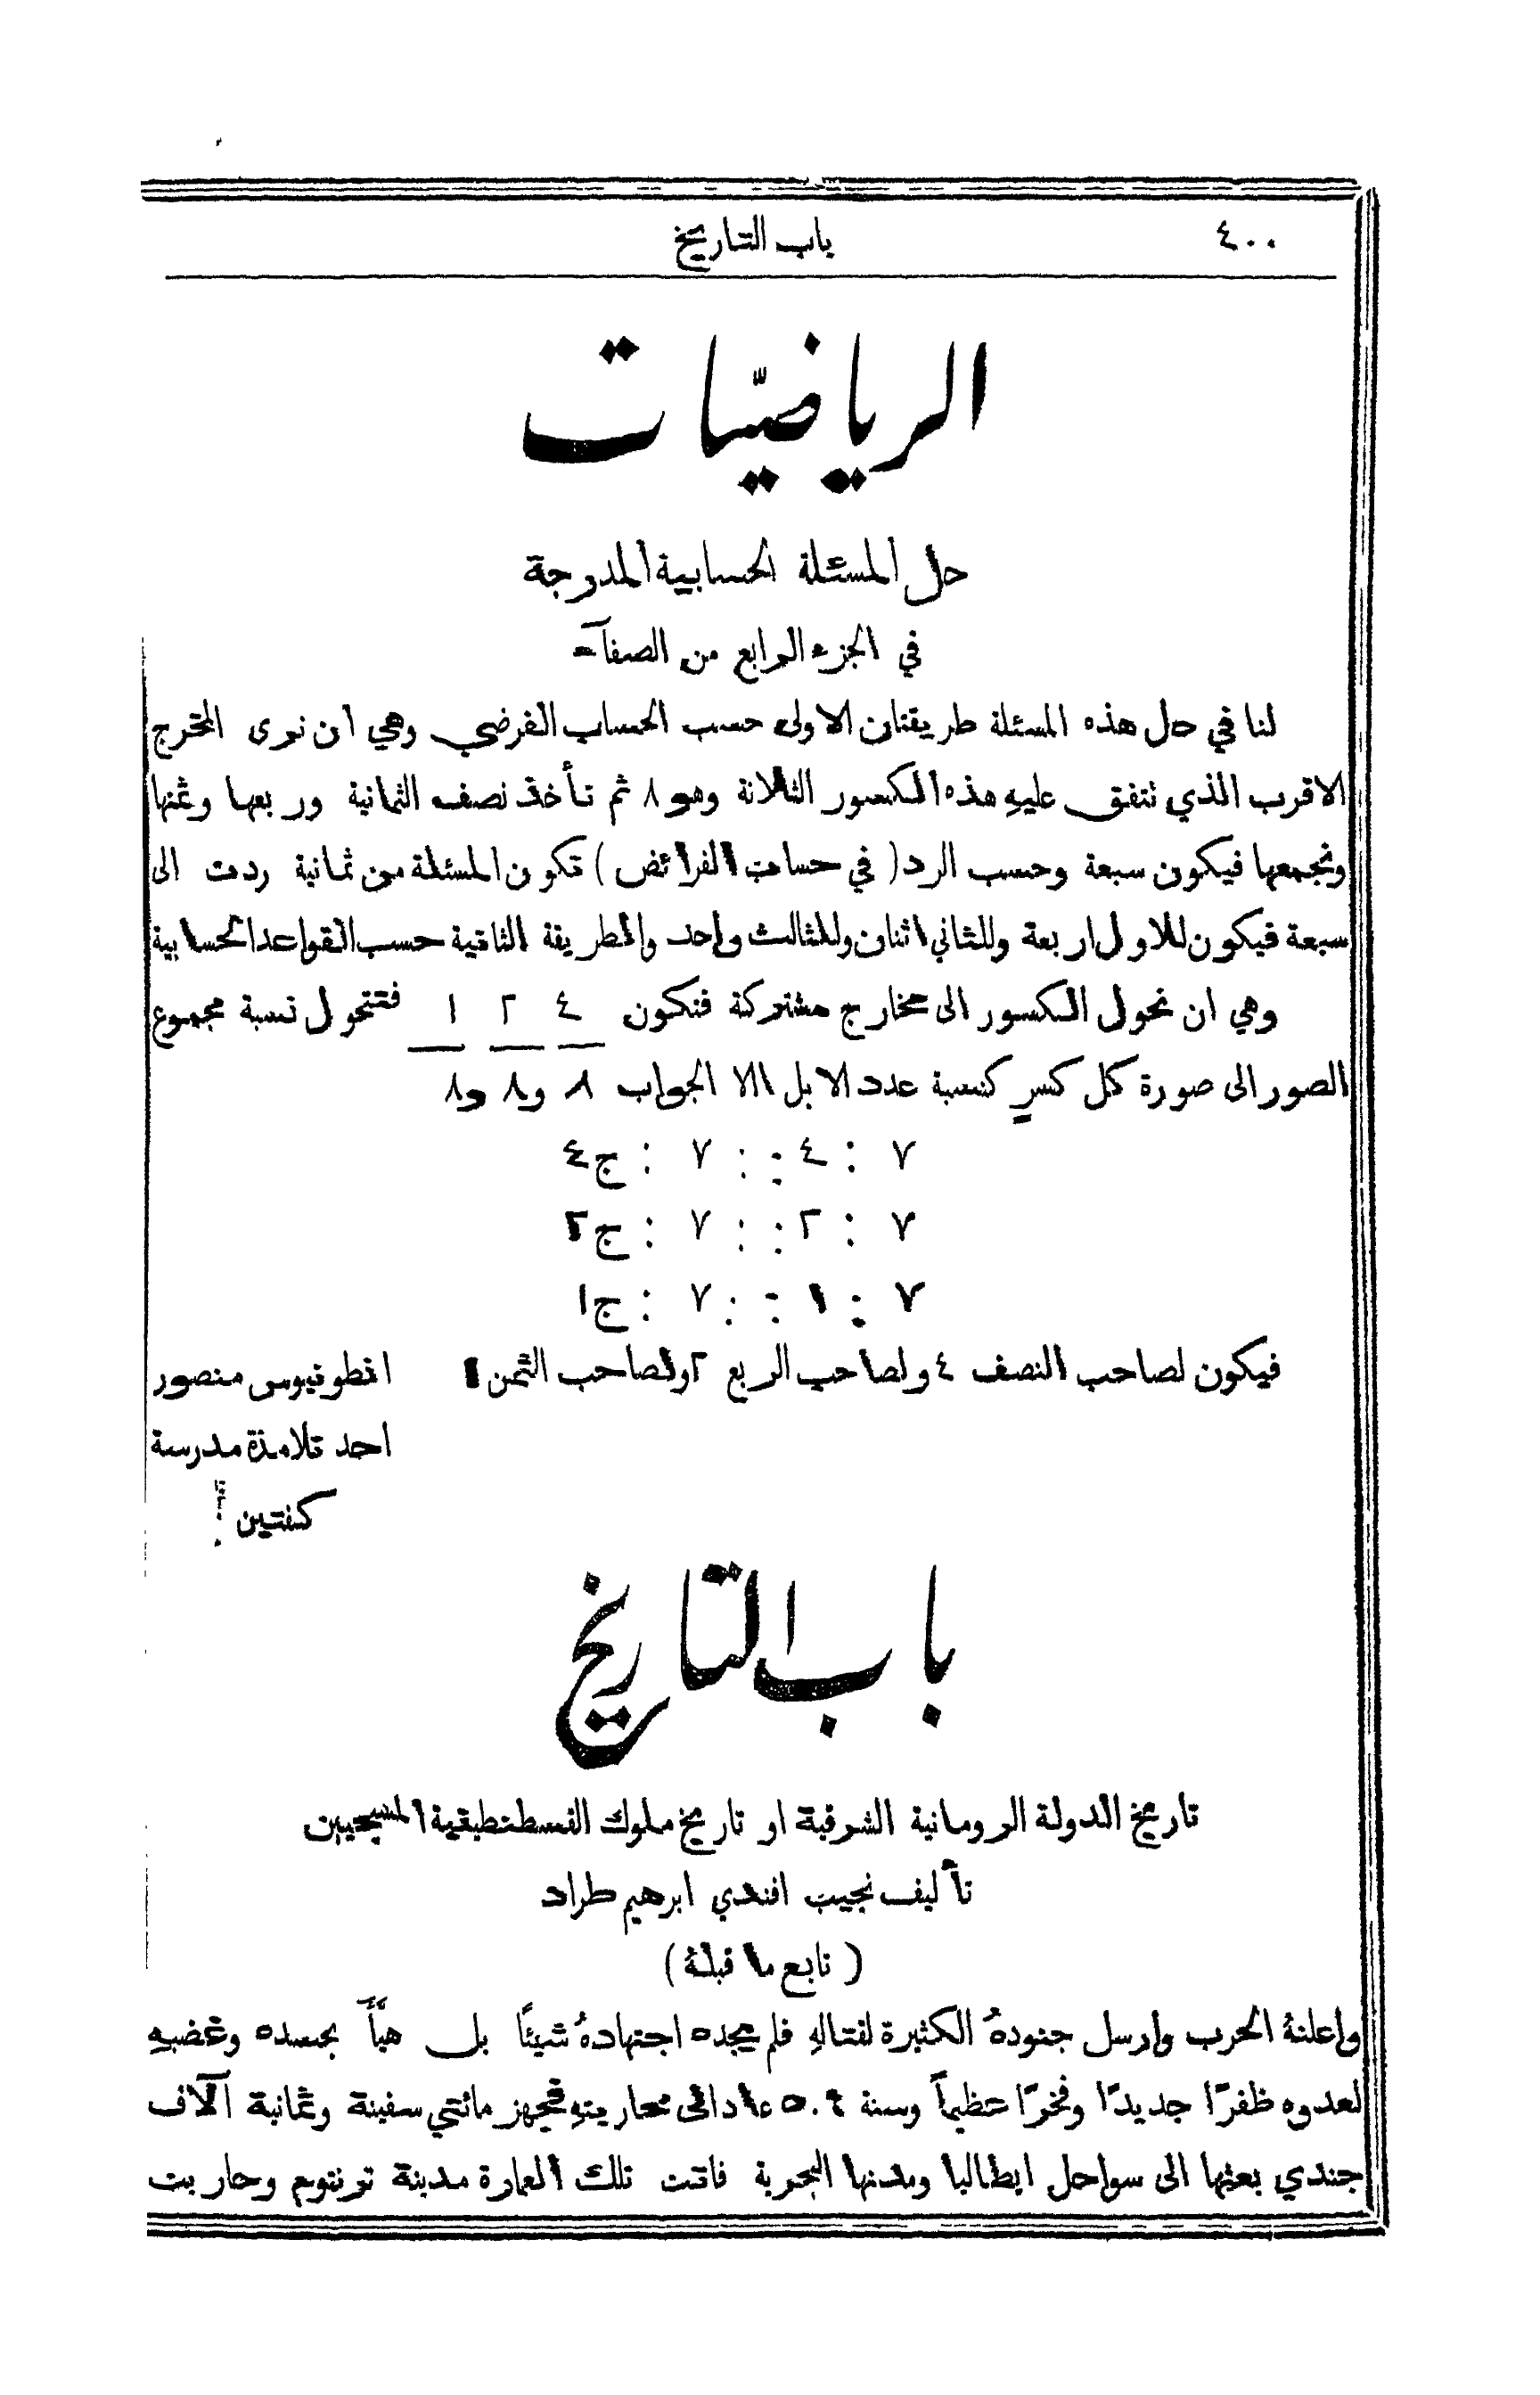 ٤٠٠
باب التاريخ
الرياضيّات
حل المسئلة الحسابية المدرجة
في الجزء الرابع من الصفاء
لنا في حل هذه المسئلة طريقتان الاولى حسب الحساب الفرضي وهي ان نرى المخرج
الاقرب الذي نتفق عليهِ هذه الكسور الثلاثة وهو ٨ ثم نأخذ نصف الثمانية وربعها وثمنها
ونجمعها فيكون سبعة وحسب الرد (في حساب الفرائض) تكون المسئلة من ثمانية ردت الى
سبعة فيكون للاول اربعة وللثاني اثنان وللثالث واحد والطريقة الثانية حسب القواعد الحسابية
وهي ان نحول الكسور الى مخارج مشتركة فتكون ٤ ٢ ١ فتتحول نسبة مجموع
الصور الى صورة كل كسرٍ كنسبة عدد الابل الا الجواب ٨ و٨ و٨
٧ : ٤ : : ٧ : ج٤
٧ : ٢ : : ٧ : ج٢
٧ : ١ : : ٧ : ج١
فيكون لصاحب النصف ٤ ولصاحب الربع ٢ ولصاحب الثمن ١ انطونيوس منصور
احد تلامذة مدرسة
كفتين
باب التاريخ
تاريخ الدولة الرومانية الشرقية او تاريخ ملوك القسطنطينية المسيحيين
تأليف نجيب افندي ابرهيم طراد
(تابع ما قبلهُ)
واعلنهُ الحرب وارسل جنودهُ الكثيرة لقتالهِ فلم يجده اجتهادهُ شيئًا بل هيأَ بحسده وغضبهِ
لعدوه ظفرًا جديدًا وفخرًا عظيماً وسنة ٥٠٩ عاد الى محاربتهِ فجهز مائتي سفينة وثمانية آلاف
جندي بعثها الى سواحل ايطاليا ومدنها البحرية فاتت تلك العمارة مدينة ترنتوم وحاربت